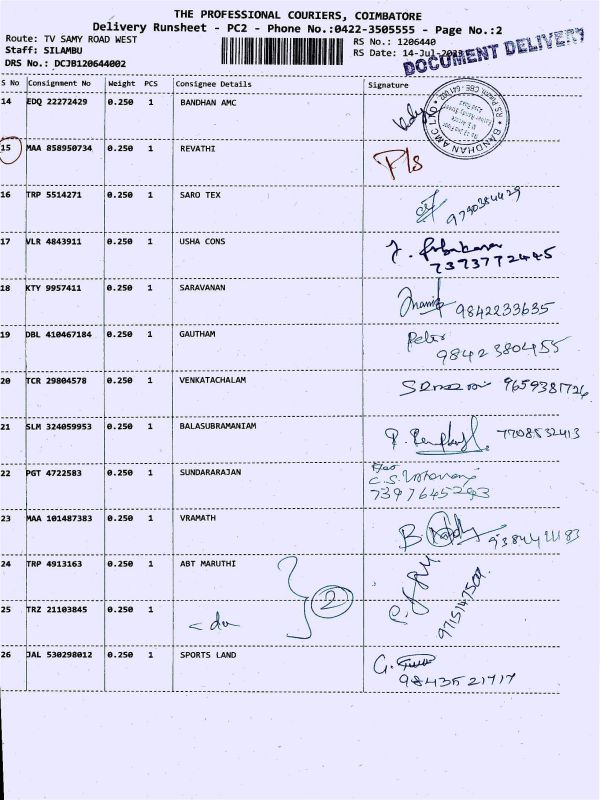 THE PROFESSIONAL COURIERS, COIMBATORE
Delivery Runsheet - PC2 - Phone No.:0422-3505555 - Page No.:2
Route: TV SAMY ROAD WEST
RS No.: 1206440
Staff: SILAMBU
RS Date: 14-Jul-2023
DRS No.: DCJB120644002
DOCUMENT DELIVERY
S No Consignment No Weight PCS Consignee Details Signature
14 EDQ 22272429 0.250 1 BANDHAN AMC
BANDHAN AMC
15 MAA 858950734 0.250 1 REVATHI P/s
16 TRP 5514271 0.250 1 SARO TEX 9790384429
17 VLR 4843911 0.250 1 USHA CONS
7373772445
18 KTY 9957411 0.250 1 SARAVANAN 9842233635
19 DBL 410467184 0.250 1 GAUTHAM Peter
9842380455
20 TCR 29804578 0.250 1 VENKATACHALAM 9659381726
21 SLM 324059953 0.250 1 BALASUBRAMANIAM 7708532413
22 PGT 4722583 0.250 1 SUNDARARAJAN
7397645293
23 MAA 101487383 0.250 1 VRAMATH
24 TRP 4913163 0.250 1 ABT MARUTHI
2
25 TRZ 21103845 0.250 1
26 JAL 530298012 0.250 1 SPORTS LAND
9843521717